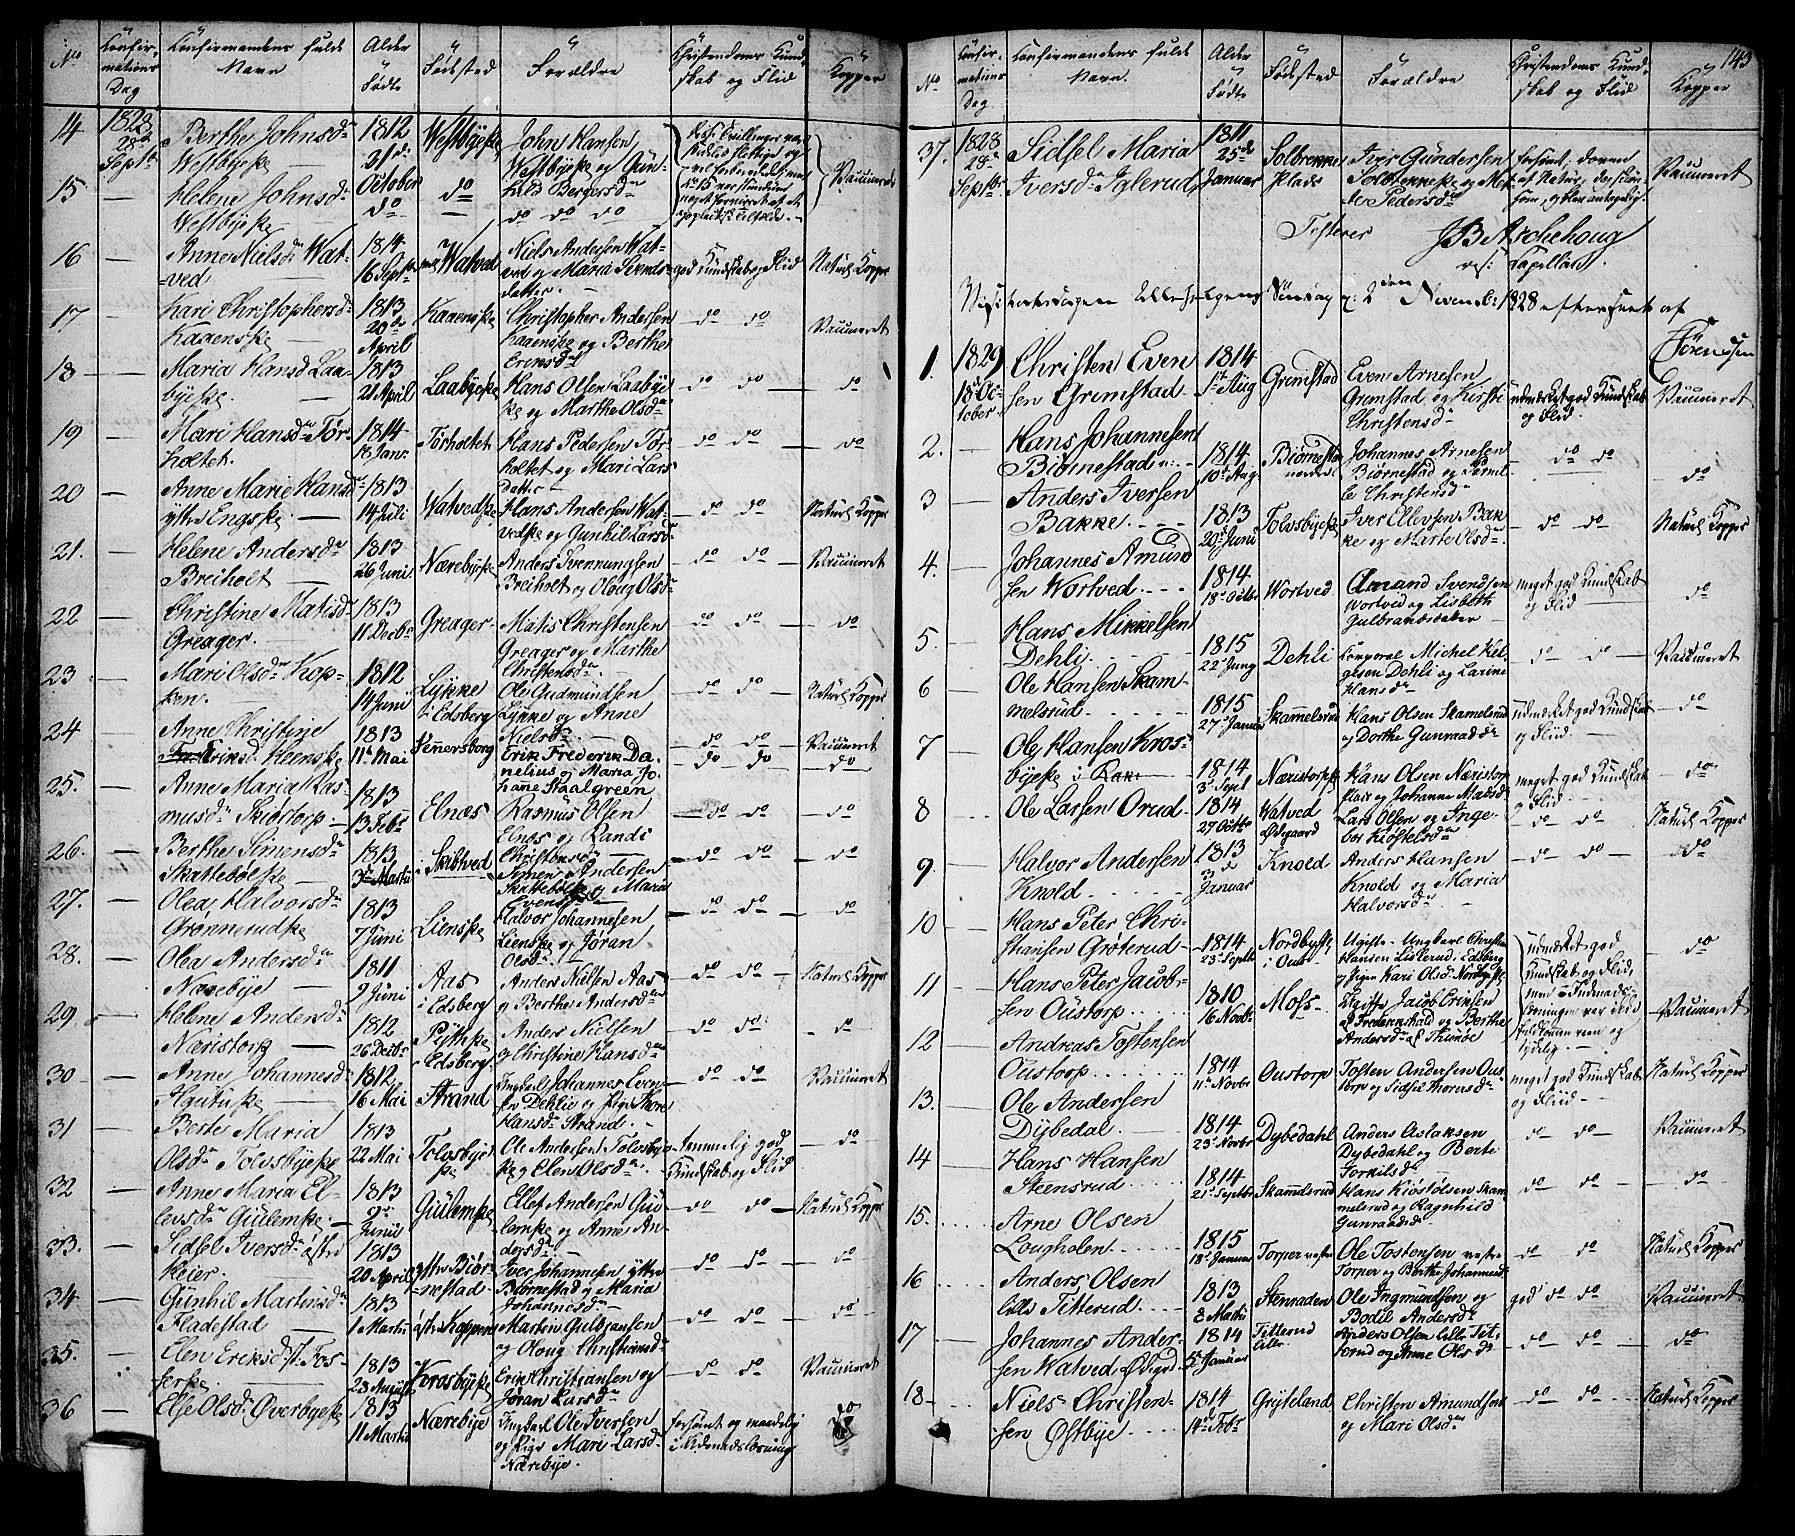 No
Confir-
mations
Dag
Confirmandens fulde
Navn
Alder
Fødte
Fødested
Forældre
Christendoms Kund-
skab og Flid
Kopper
14
1828
28de
Septbr
Berthe Johnsdr
Westbyeske
1812
21de
October
Westbyeske
John Hansen
Westbyeske og Gun-
hild Borgersdr
Vaccineret
15
Helene Johnsdr
Westbyeske
do
do
do do do
16
Anne Nielsdr Wat-
ved
1814
16 Septbr
Watved
Niels Andersen Wat-
ved og Maria Svends-
datter
god Kundskab og Flid
Naturl Kopper
17
Kari Christophersdr
Kaaenske
1813
20de
April
Kaaenske
Christopher Andersen
Kaaenske og Berthe
Eriksdr
do do
Vaccineret
18
Maria Hansdr Laa-
byeske
1813
21 April
Laabyeske
Hans Olsen Laabye
ske og Marthe Olsdr
do do
do
19
Mari Hansdr Tør-
holtet.
1814
18 Janr
Tørholtet
Hans Pedersen Tør-
holtet og Mari Lars
datter
do do
do
20
Anne Marie Hansdr
yttre Engske
1813
14 Juli
Watvedske
Hans Andersen Wat-
vedske og Gunhil Larsdr
do do
Naturl Kopper
21.
Helene Andersdr
Breiholt
1813
26 Juni
Nærebyeske
Anders Svennungsen
Breiholt og Oloug Olsdr
do do
Vaccineret
22
Christine Matisdr
Greager.
1813
11 Decbr
Greager.
Matis Christensen
Greager og Marthe
Christensdr
do do
do
23
Mari Olsdr Kop-
ken.
1812
14 Juni
Lykke
i Edsberg
Ole Gudmundsen
Lykke og Anne
Nielsdr
do do
Naturl Kopper
24
Anne Christine
Eriksd. Heenske
1813
11te Mai
Venersborg
Erik Frederik Da-
nelius og Maria Jo-
hanne Staalgreen
do do
do do
Vaccineret
do
25.
Anne Maria Ras-
musdr Skiøtorp
1813
13 Febr
Elnæs
Rasmus Olsen
Elnæs og Randi
Christensdr
do do
do
26.
Berthe Simensdr
Skattebølske
1813
3de Martii
Skibtved
Simen Andersen
Skattebølske og Maria
Evensdr
do do
do
27.
Olea Halvorsdr
Grønnerudske
1813
7 Juni
Lienske
Halvor Johannesen
Lienske og Jøran
Olsdr
do do
do
28.
Olea Andersdr
Nærebye
1811
2 Juni
Aas
i Edsberg
Anders Nilsen Aas
og Berthe Andersdr
do do
Naturl Kopper
29
Helene Andersdr
Næristorp
1812
26 Decbr
i Edsberg
Anders Nielsen
og Christine Hansdr
do do
do
30
Anne Johannesdr
1812
16 Mai
Strand
Ungkarl Johannes Even-
sen Dehlie og Pige Thore
Hansdr Strand.
do do
Vaccineret
31
Bertes Maria
Olsdr Tolvsbyeske
1813
22 Mai
Tolvsbye
ske
Ole Andersen Tolvsbye-
ske og Elen Olsdr
temmelig god
Kundskab og Flid
do
32
Anne Maria El-
levsdr Gulemske
1813
9de
Junii
Gulemske
Ellef Andersen Gu-
lemske og Anne An-
dersdr
do do
Naturl Kopper
33.
Sidsel Iversdr østre
Heier.
1813
20 April
yttre Biør-
nestad
Iver Johannesen yttre
Biørnestad og Maria
Johannesdr
do do
do
34.
Gunhil Martinsdr
Fladestad
1813
1 Martii
østre Koppern
Martin Gulbransen
og Oloug Christiansdr
do do
do
35.
Elen Eriksdr Fos-
serske
1813
28 August
Krosbyeske
Erik Christiansen og
Jøran Larsdr
do do
Vaccineret
36
Else Olsdr Overbyeske
1813
11 Martii
Nærebye
Ungkarl Ole Iversen
og Pige Mari Larsdr
Nærebye.
forsømt og maadelig
i Udenadslæsning
do
143
No
Confir-
mations
Dag
Confirmandens fulde
Navn.
Alder
Fødte
Fødested
Forældre
Christendoms Kund-
skab og Flid
Kopper
37.
1828
28de
Septbr
Sidsel Maria
Iversdr Iglerud
1811
25de
Januar
Solbrekke
Plads
Iver Gundersen
Solbrekke og Met-
te Pedersdr
Vaccineret
Testerer JB Aschehoug
res: Capellan.
Visitatsdagen Allehelgens Søndag d: 2den Novemb: 1828 efterseet af
Sørenssen
1.
1829
18 Oc-
tober.
Christen Even
sen Grimstad
1814
1ste Aug
Gremstad
Even Arnesen
Gremstad og Kirsti
Christensdr
udmærket god Kundskab
og Flid.
Vaccineret
2.
Hans Johannesen
Biørnestad n:
1814
10de Aug
Biørnestad
nordre
Johannes Arnesen
Biørnestad og Pernil-
le Christensdr
do do
do
3
Anders Iversen
Bakke.
1813
20de Juni
Tolvsbyeske
Iver Ellevsen Bak-
ke og Marte Olsdr.
do do
Naturl Kopper
4.
Johannes Amund
sen Wortved.
1814
18de Octbr
Wortved
Amund Svendsen
Wortved og Lisbeth
Gulbrandsdatter
meget god Kundskab
og Flid
do
5.
Hans Mikkelsen
Dehli.
1815
22de Juny
Dehli
Corporal Michel Hel-
gesen Dehli og Larine
Hansdr
do do
Vaccineret
6
Ole Hansen Skam-
melsrud.
1815
27de Januar
Skammelsrud
Hans Olsen Skamelsrud
og Dorthe Gunraadsdr
udmærket god Kundskab
og Fliid.
do
7
Ole Hansen Kros-
byeske i
1814
3de Septb
Næristorpske
Hans Olsen Næristorp
plads og Johanne Madsdr
meget god Kundskab
og Fliid.
do
8
Ole Larsen Orud
1814
27 Octbr
Watved
Ødegaard
Lars Olsen og Inge-
bor Kiøstelsdr
do do
Naturl Kopper
9.
Halvor Andersen
Knold.
1813
3de
Januar
Knold
Anders Hansen
Knold og Maria
Halvorsdr
do do
do
10
Hans Peter Chri-
stiansen Grøterud
1814
23de Septbr
Nordbyske
Ugifte Ungkarl Christian
Hansen Listerud, Edsberg
og Pige Kari Olsdr Nordbyske
udmærket god
Kundskab og Flid,
do
11
Hans Peter Jacob-
sen Oustorp
1810
16 Novbr
Moss
Ugifte Jacob Eriksen
af Frederikshald og Berthe
Andersdr af Thunøe
Vaccineret
12
Andreas Tostensen
Oustorp
1814
11te Novbr
Oustorp
Tosten Andersen Ous
torp og Sidsel Thoresdr
meget god Kundskab
og Fliid
Naturl Kopper
13.
Ole Andersen
Dybedal.
1814
23de Novbr
Dybedahl
Anders Aslaksen
Dybedahl og Berte
Torkilsdr
do do
Vaccineret
14
Hans Hansen
Steensrud.
1814
21de Septbr
Skammelsrud
Hans Kiøstølsen Skam
melsrud og Ragnhild
Gunraadsdr
do do
do
15.
Arne Olsen
Lougholen.
1815
18de Januar
Torper vestre
Ole Tostensen vestre
Torper og Berthe Johannesdr
do do
Naturl Kopper
16
Anders Olsen
lille Titterud.
1813
8 Martii
Stenraden
Ole Ingmundsen og
Bodil Andersdr
god do do
Vaccineret
17
Johannes Ander-
sen Watved, Ødegrd
1814
5te Januar
Titterud
lille
Anders Olsen lille Tit-
terud og Anne Olsdr
do do
do
18
Niels Christen-
sen Østbye.
1814
14de Febr
Gryteland
Christen Amundsen
og Mari Olsdr
do do
Naturl Kopper